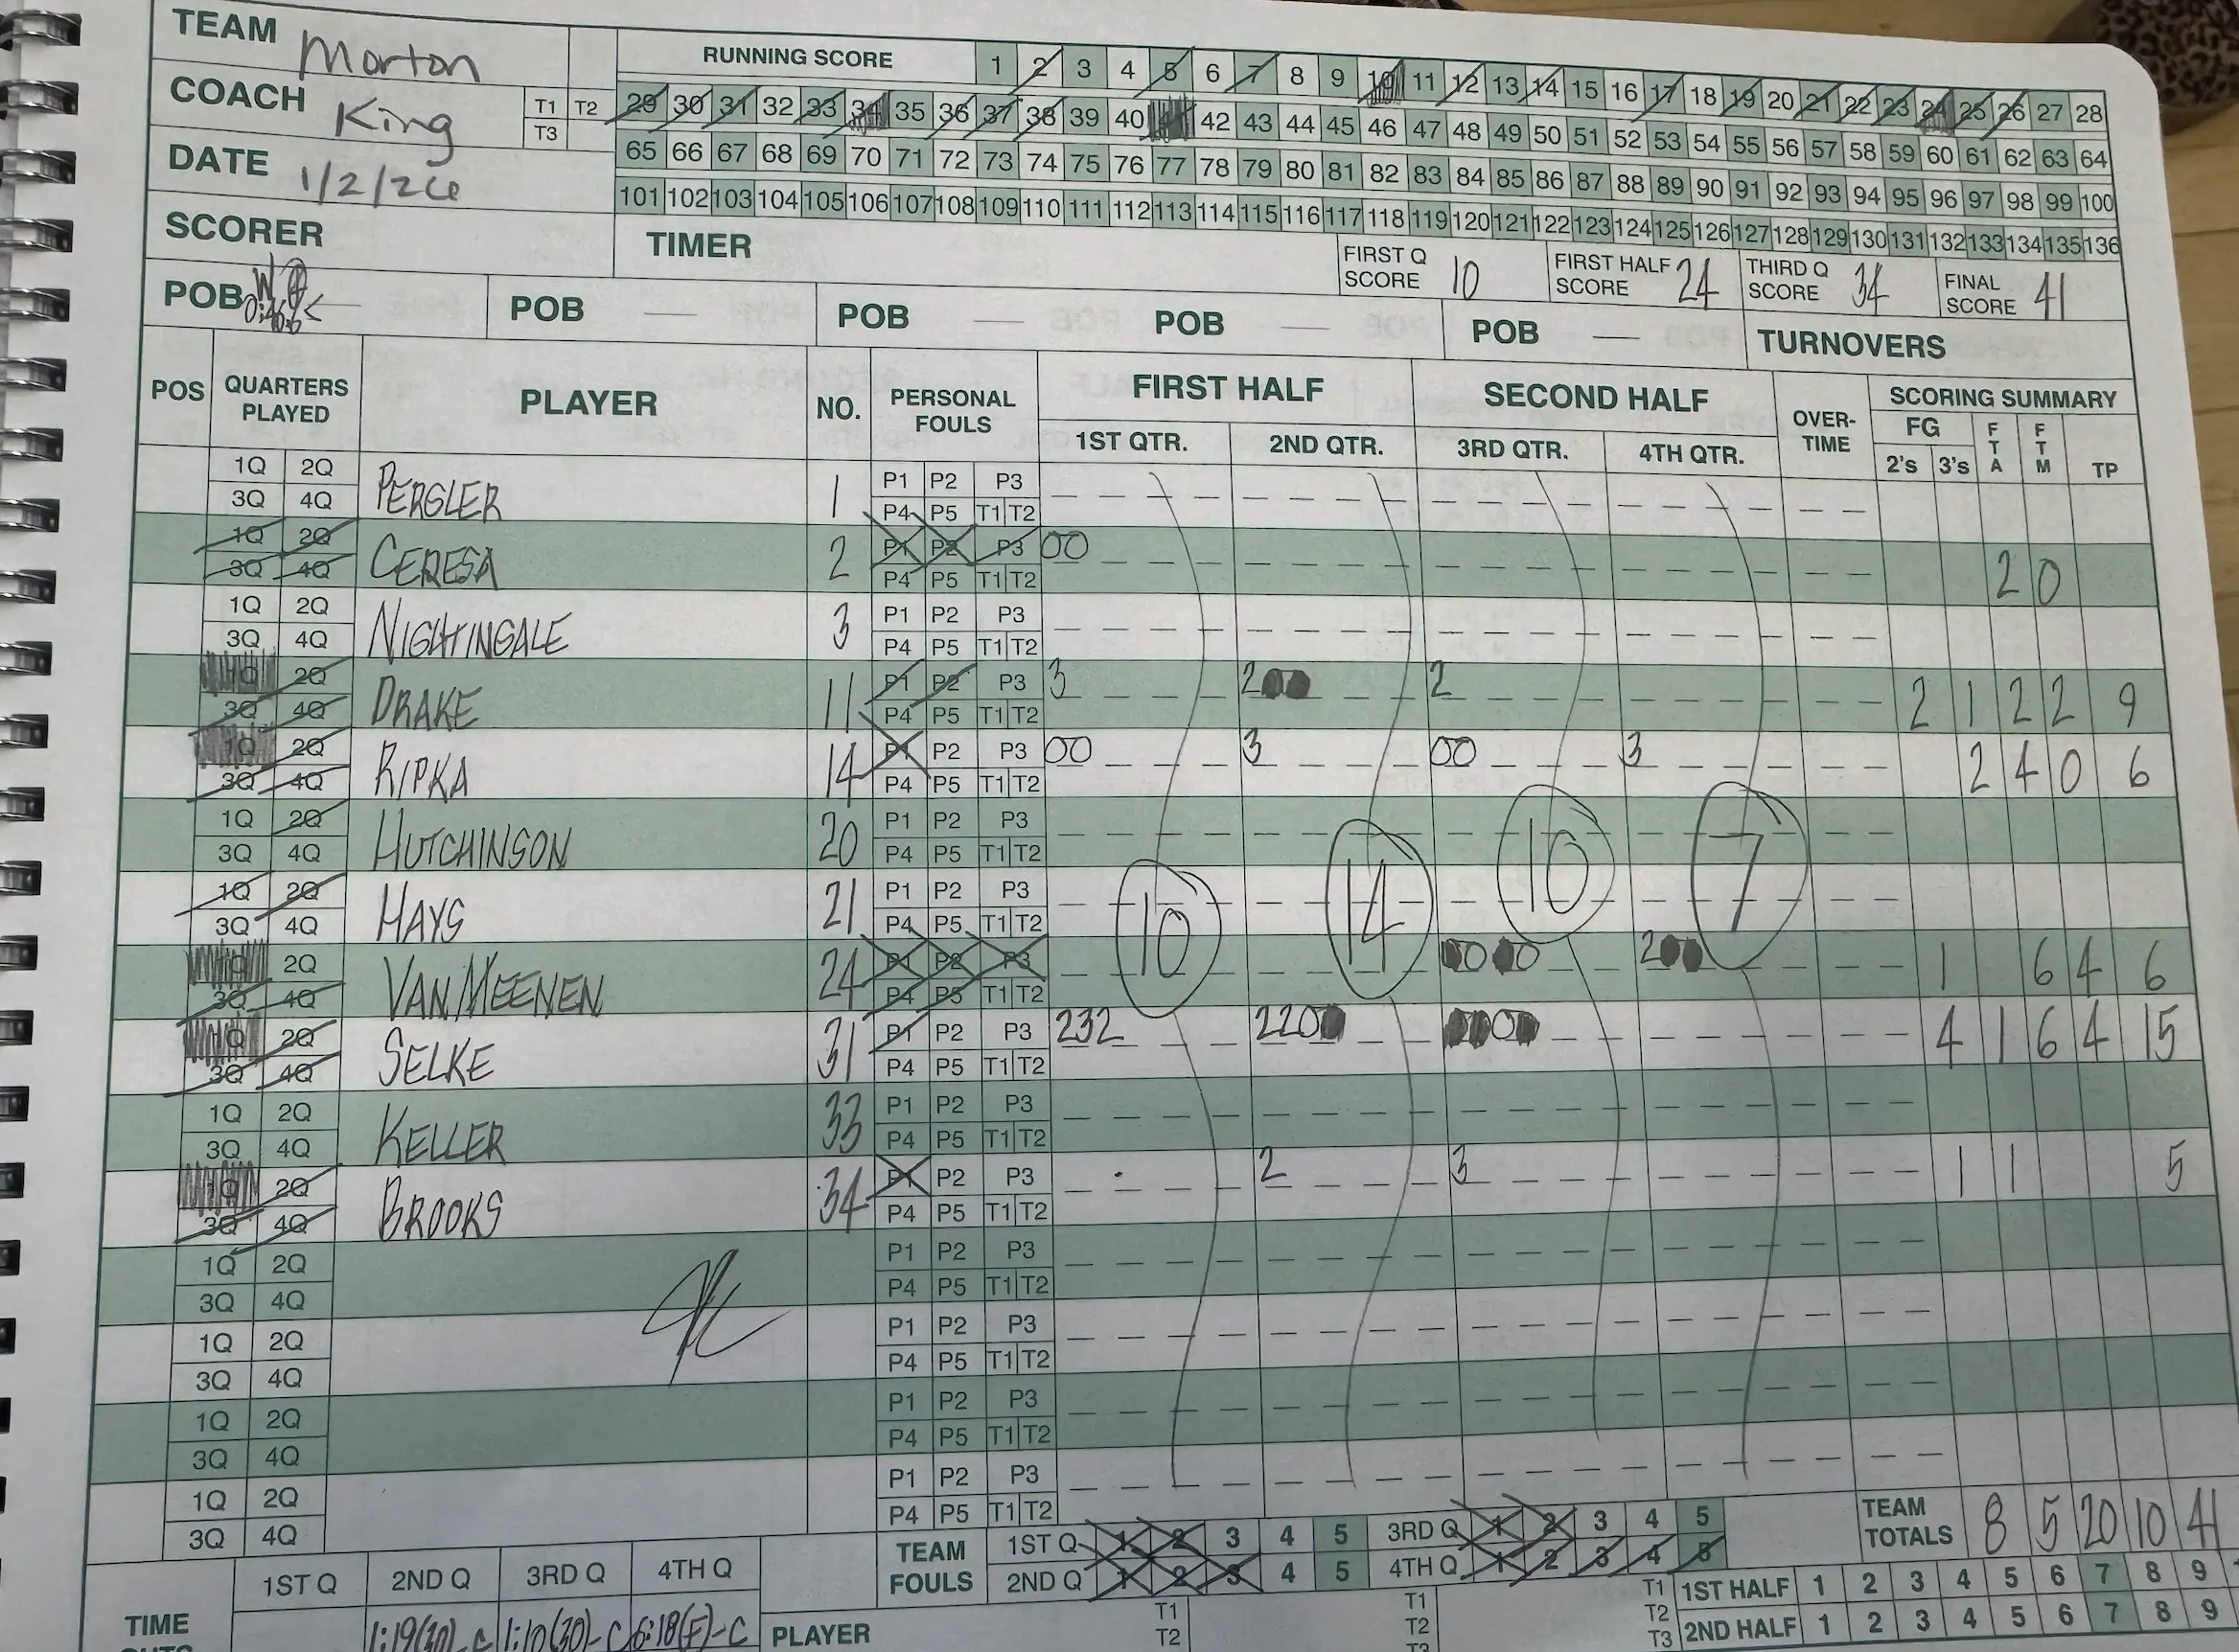 TEAM Morton
RUNNING SCORE 1 2 3 4 5 6 7 8 9 10 11 12 13 14 15 16 17 18 19 20 21 22 23 24 25 26 27 28
COACH King T1 T2 T3
29 30 31 32 33 34 35 36 37 38 39 40 41 42 43 44 45 46 47 48 49 50 51 52 53 54 55 56 57 58 59 60 61 62 63 64
DATE 1/2/26
65 66 67 68 69 70 71 72 73 74 75 76 77 78 79 80 81 82 83 84 85 86 87 88 89 90 91 92 93 94 95 96 97 98 99 100
101 102 103 104 105 106 107 108 109 110 111 112 113 114 115 116 117 118 119 120 121 122 123 124 125 126 127 128 129 130 131 132 133 134 135 136
SCORER TIMER FIRST Q SCORE 10 FIRST HALF SCORE 24 THIRD Q SCORE 34 FINAL SCORE 41
POB POB POB POB POB TURNOVERS
POS QUARTERS PLAYED PLAYER NO. PERSONAL FOULS FIRST HALF SECOND HALF OVER-TIME SCORING SUMMARY
1ST QTR. 2ND QTR. 3RD QTR. 4TH QTR. FG 2's 3's FTA FTM TP
1Q 2Q PERGLER 1 P1 P2 P3
3Q 4Q P4 P5 T1 T2
1Q 2Q CERESA 2 P1 P2 P3 00 2 0
3Q 4Q P4 P5 T1 T2
1Q 2Q NIGHTINGALE 3 P1 P2 P3
3Q 4Q P4 P5 T1 T2
1Q 2Q DRAKE 11 P1 P2 P3 3 200 2 2 1 2 2 9
3Q 4Q P4 P5 T1 T2
1Q 2Q RIPKA 14 P1 P2 P3 00 3 00 3 2 4 0 6
3Q 4Q P4 P5 T1 T2
1Q 2Q HUTCHINSON 20 P1 P2 P3
3Q 4Q P4 P5 T1 T2
1Q 2Q HAYS 21 P1 P2 P3
3Q 4Q P4 P5 T1 T2
10 14 10 7
1Q 2Q VAN MEENEN 24 P1 P2 P3 0000 200 1 6 4 6
3Q 4Q P4 P5 T1 T2
1Q 2Q SELKE 31 P1 P2 P3 232 2200 0000 4 1 6 4 15
3Q 4Q P4 P5 T1 T2
1Q 2Q KELLER 33 P1 P2 P3
3Q 4Q P4 P5 T1 T2
1Q 2Q BROOKS 34 P1 P2 P3 2 3 1 1 5
3Q 4Q P4 P5 T1 T2
1Q 2Q P1 P2 P3
3Q 4Q P4 P5 T1 T2
1Q 2Q P1 P2 P3
3Q 4Q P4 P5 T1 T2
1Q 2Q P1 P2 P3
3Q 4Q P4 P5 T1 T2
1Q 2Q P1 P2 P3
3Q 4Q P4 P5 T1 T2
TEAM FOULS 1ST Q 1 2 3 4 5 3RD Q 1 2 3 4 5 TEAM TOTALS 8 5 20 10 41
2ND Q 1 2 3 4 5 4TH Q 1 2 3 4 5
1ST Q 2ND Q 3RD Q 4TH Q
T1 T1 T1 1ST HALF 1 2 3 4 5 6 7 8 9
TIME 1:19(30)-C 1:10(30)-C 6:18(F)-C PLAYER T2 T2 T2 T3 2ND HALF 1 2 3 4 5 6 7 8 9